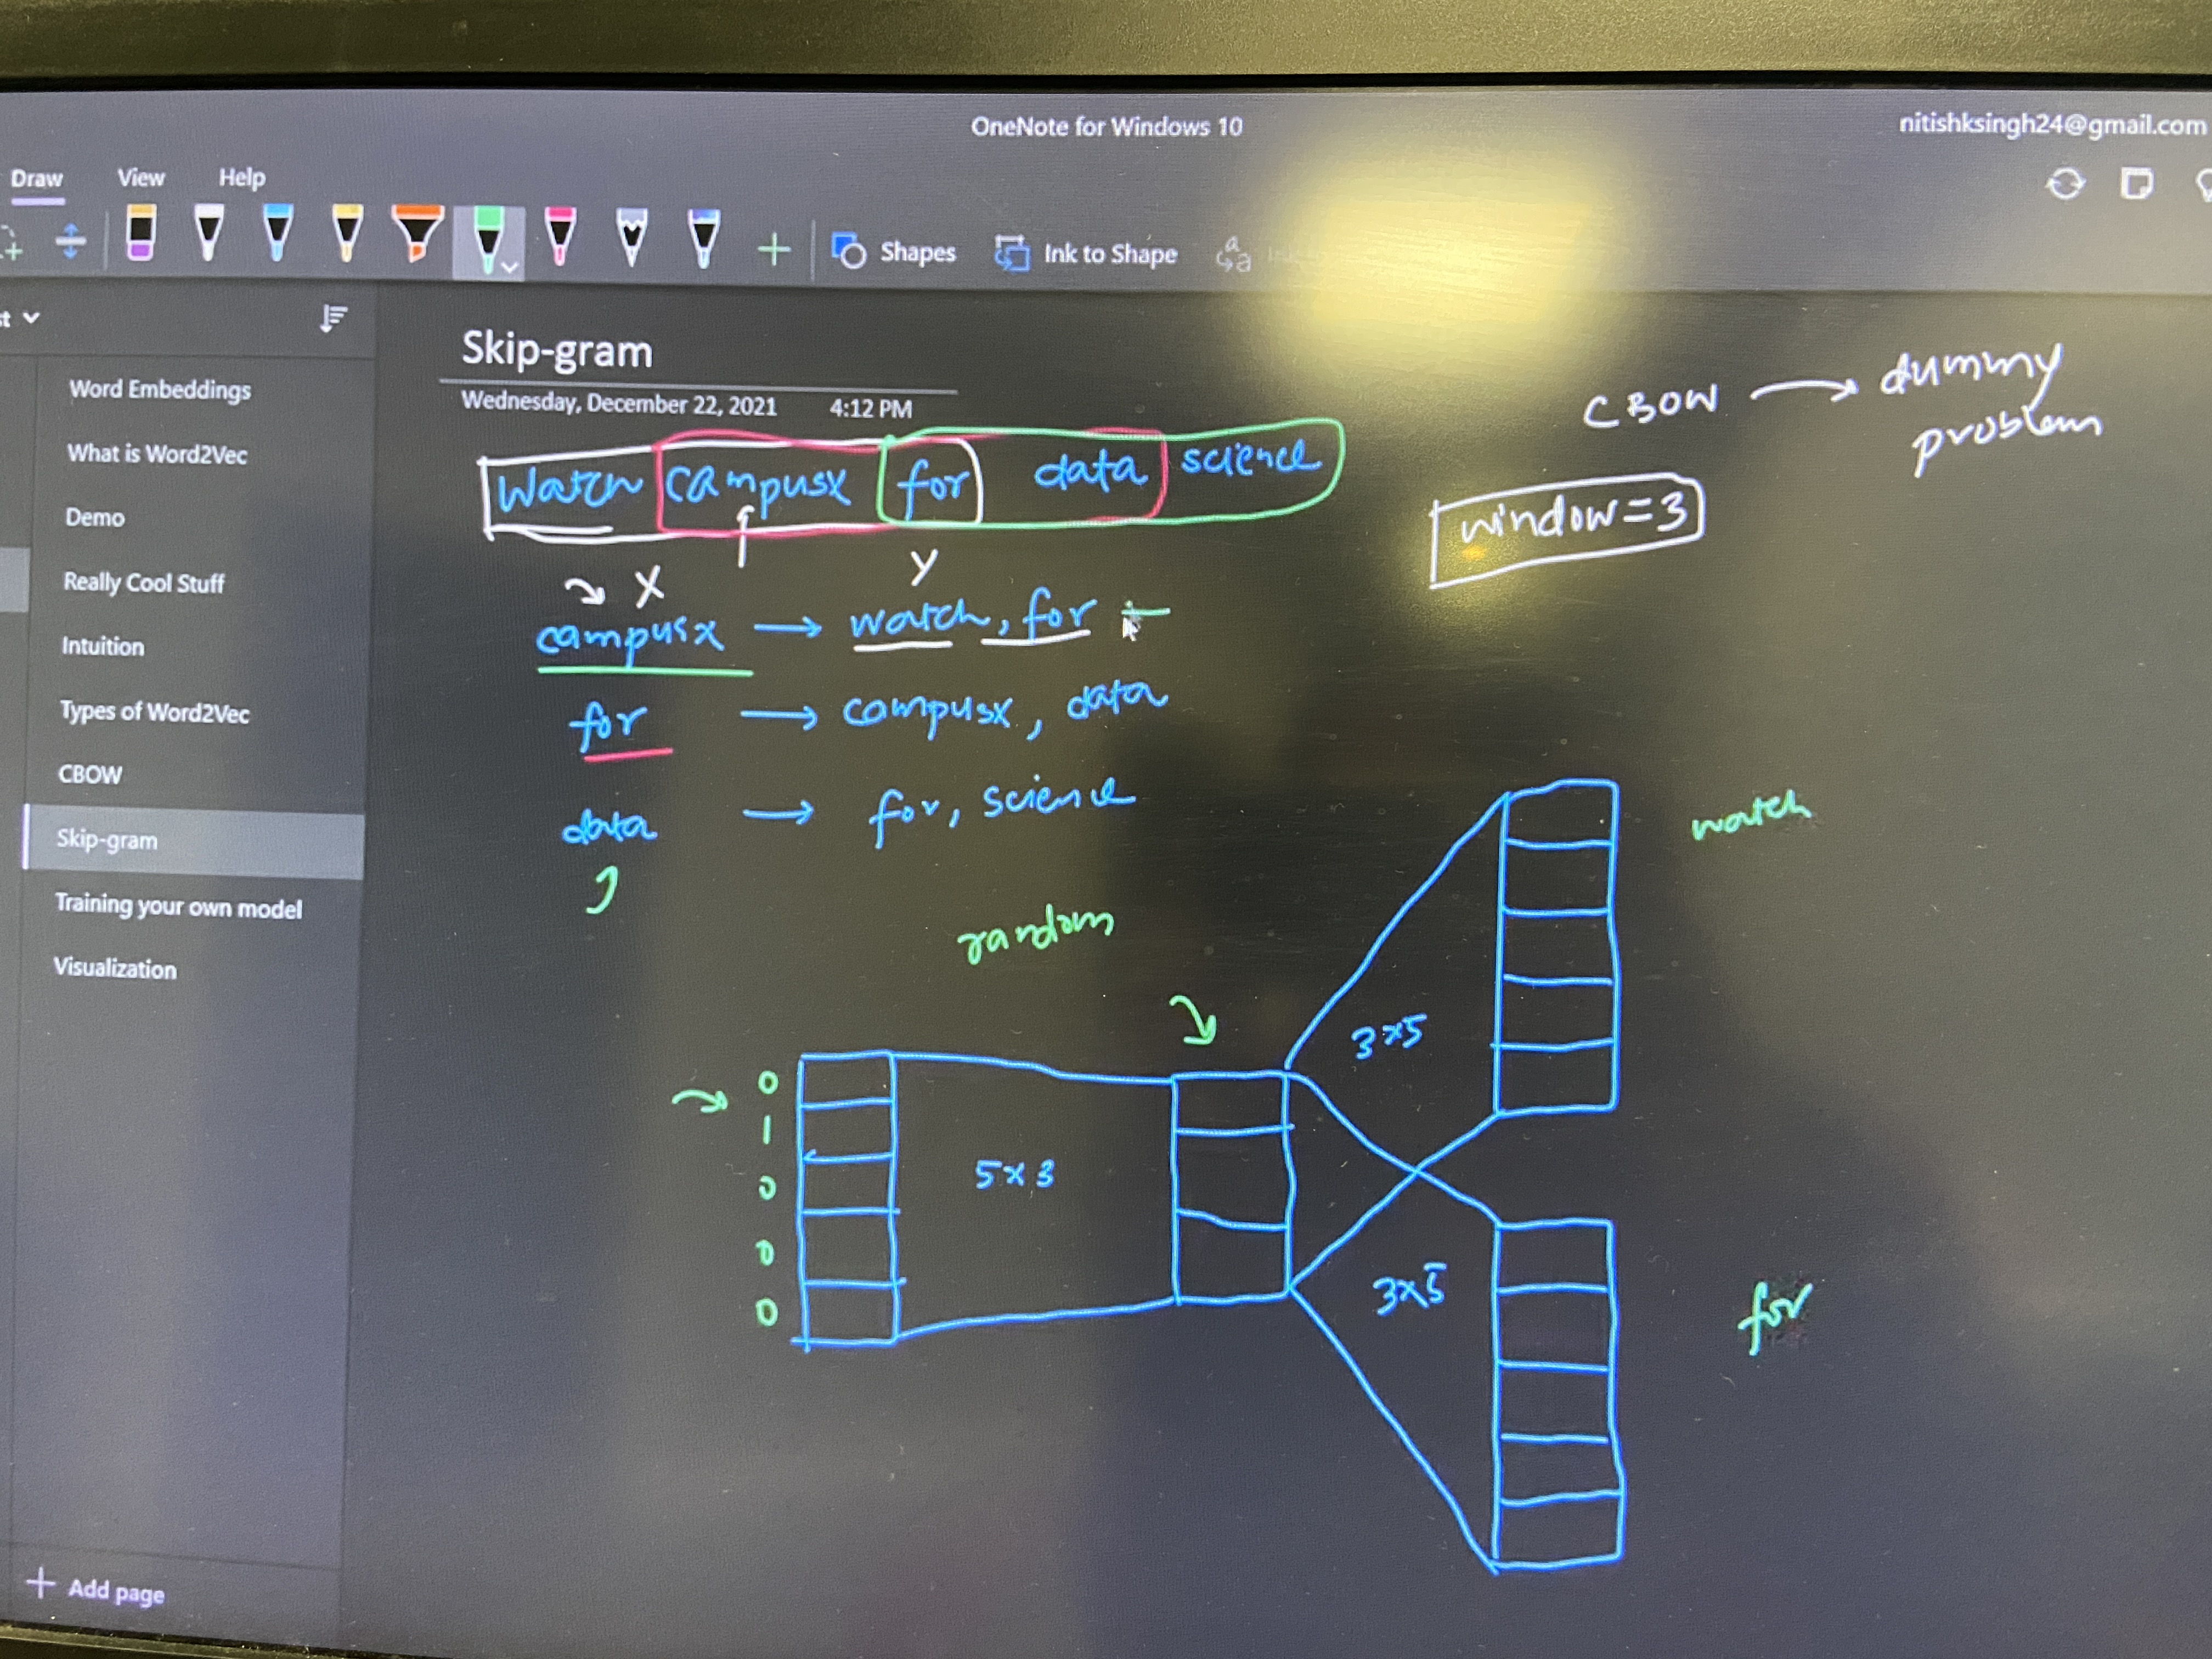 OneNote for Windows 10
nitishksingh24@gmail.com
Draw View Help
Shapes Ink to Shape
Word Embeddings
What is Word2Vec
Demo
Really Cool Stuff
Intuition
Types of Word2Vec
CBOW
Skip-gram
Training your own model
Visualization
Add page
Skip-gram
Wednesday, December 22, 2021 4:12 PM
CBOW → dummy
problem
Watch campusx for data science
window=3
X Y
campusx → watch, for
for → campusx, data
data → for, science
random
watch
3x5
0
1
0
0
0
5x3
3x5
for